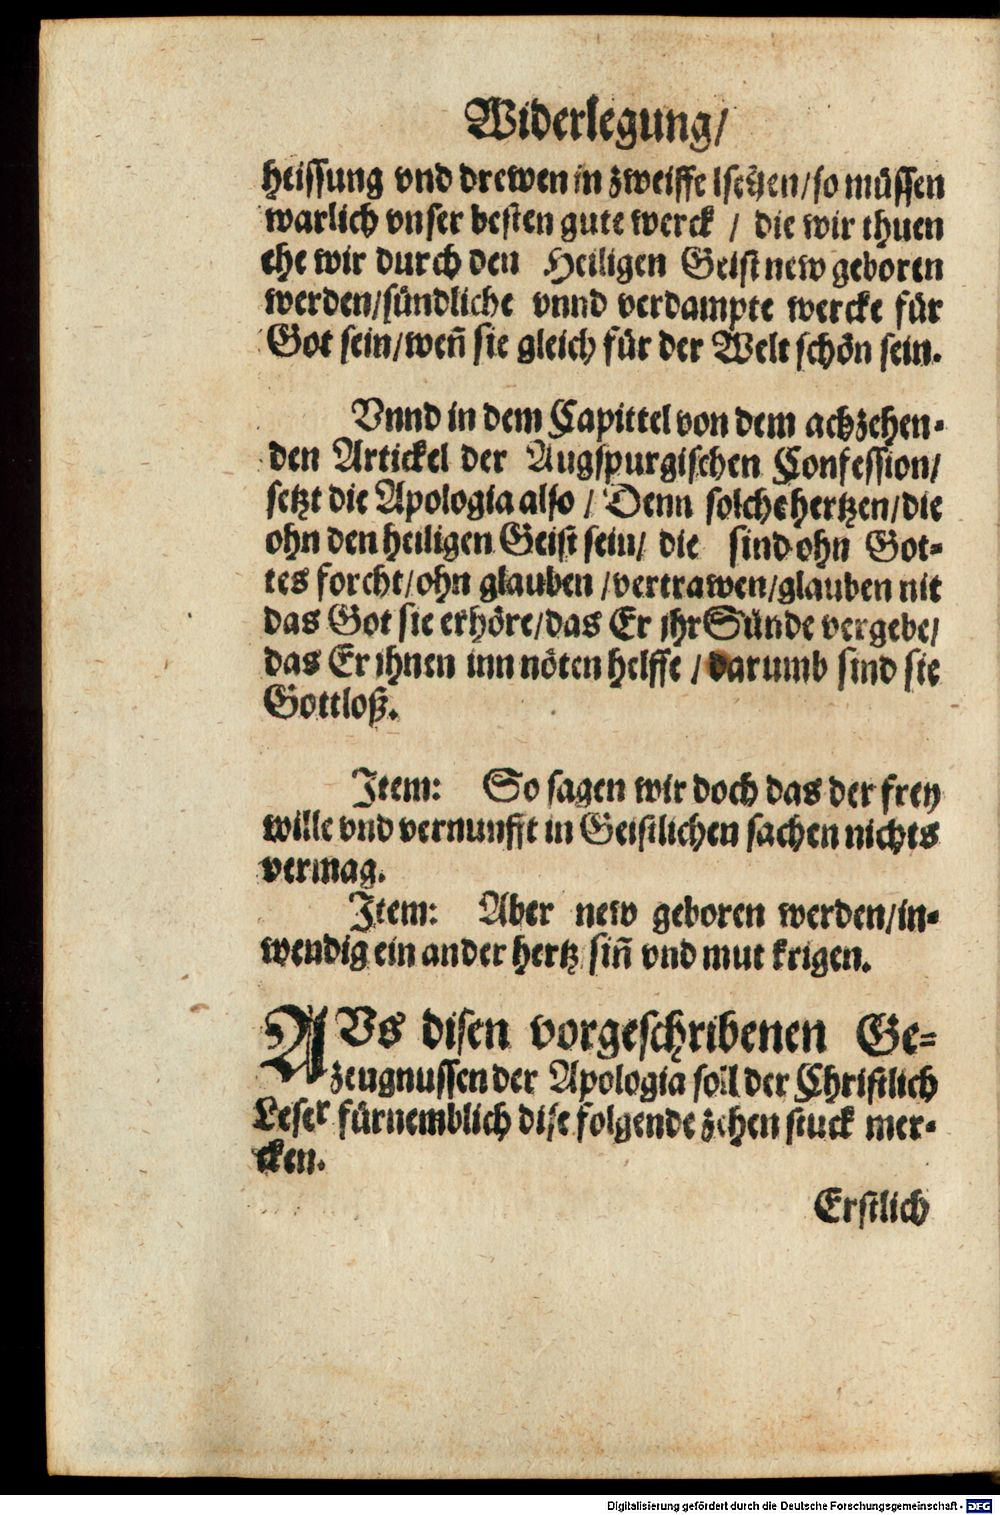 Widerlegung/
heissung vnd drewen in zweiffe lseyen/so müssen
warlich vnser besten gute werck / die wir thuen
ehe wir durch den Heiligen Geist new geboren
werden/sündliche vnnd verdampte wercke für
Got sein/weñ sie gleich für der Welt schön sein.
Vnnd in dem Capittel von dem achzehen-
den Artickel der Augspurgischen Confession/
setzt die Apologia also / Denn solche hertzen/die
ohn den heiligen Geist sein/ die sind ohn Got-
tes forcht/ohn glauben /vertrawen/glauben nit
das Got sie erhöre/das Er ihr Sünde vergebe/
das Er ihnen inn nöten helffe /darumb sind sie
Gottloß.
Item: So sagen wir doch das der frey
wille vnd vernunfft in Geistlichen sachen nichts
vermag.
Item: Aber new geboren werden/in-
wendig ein ander hertz siñ vnd mut krigen.
AVs disen vorgeschribenen Ge-
zeugnussen der Apologia soll der Christlich
Leser fürnemblich dise folgende zehen stuck mer-
cken.
Erstlich
Digitalisierung gefördert durch die Deutsche Forschungsgemeinschaft - DFG